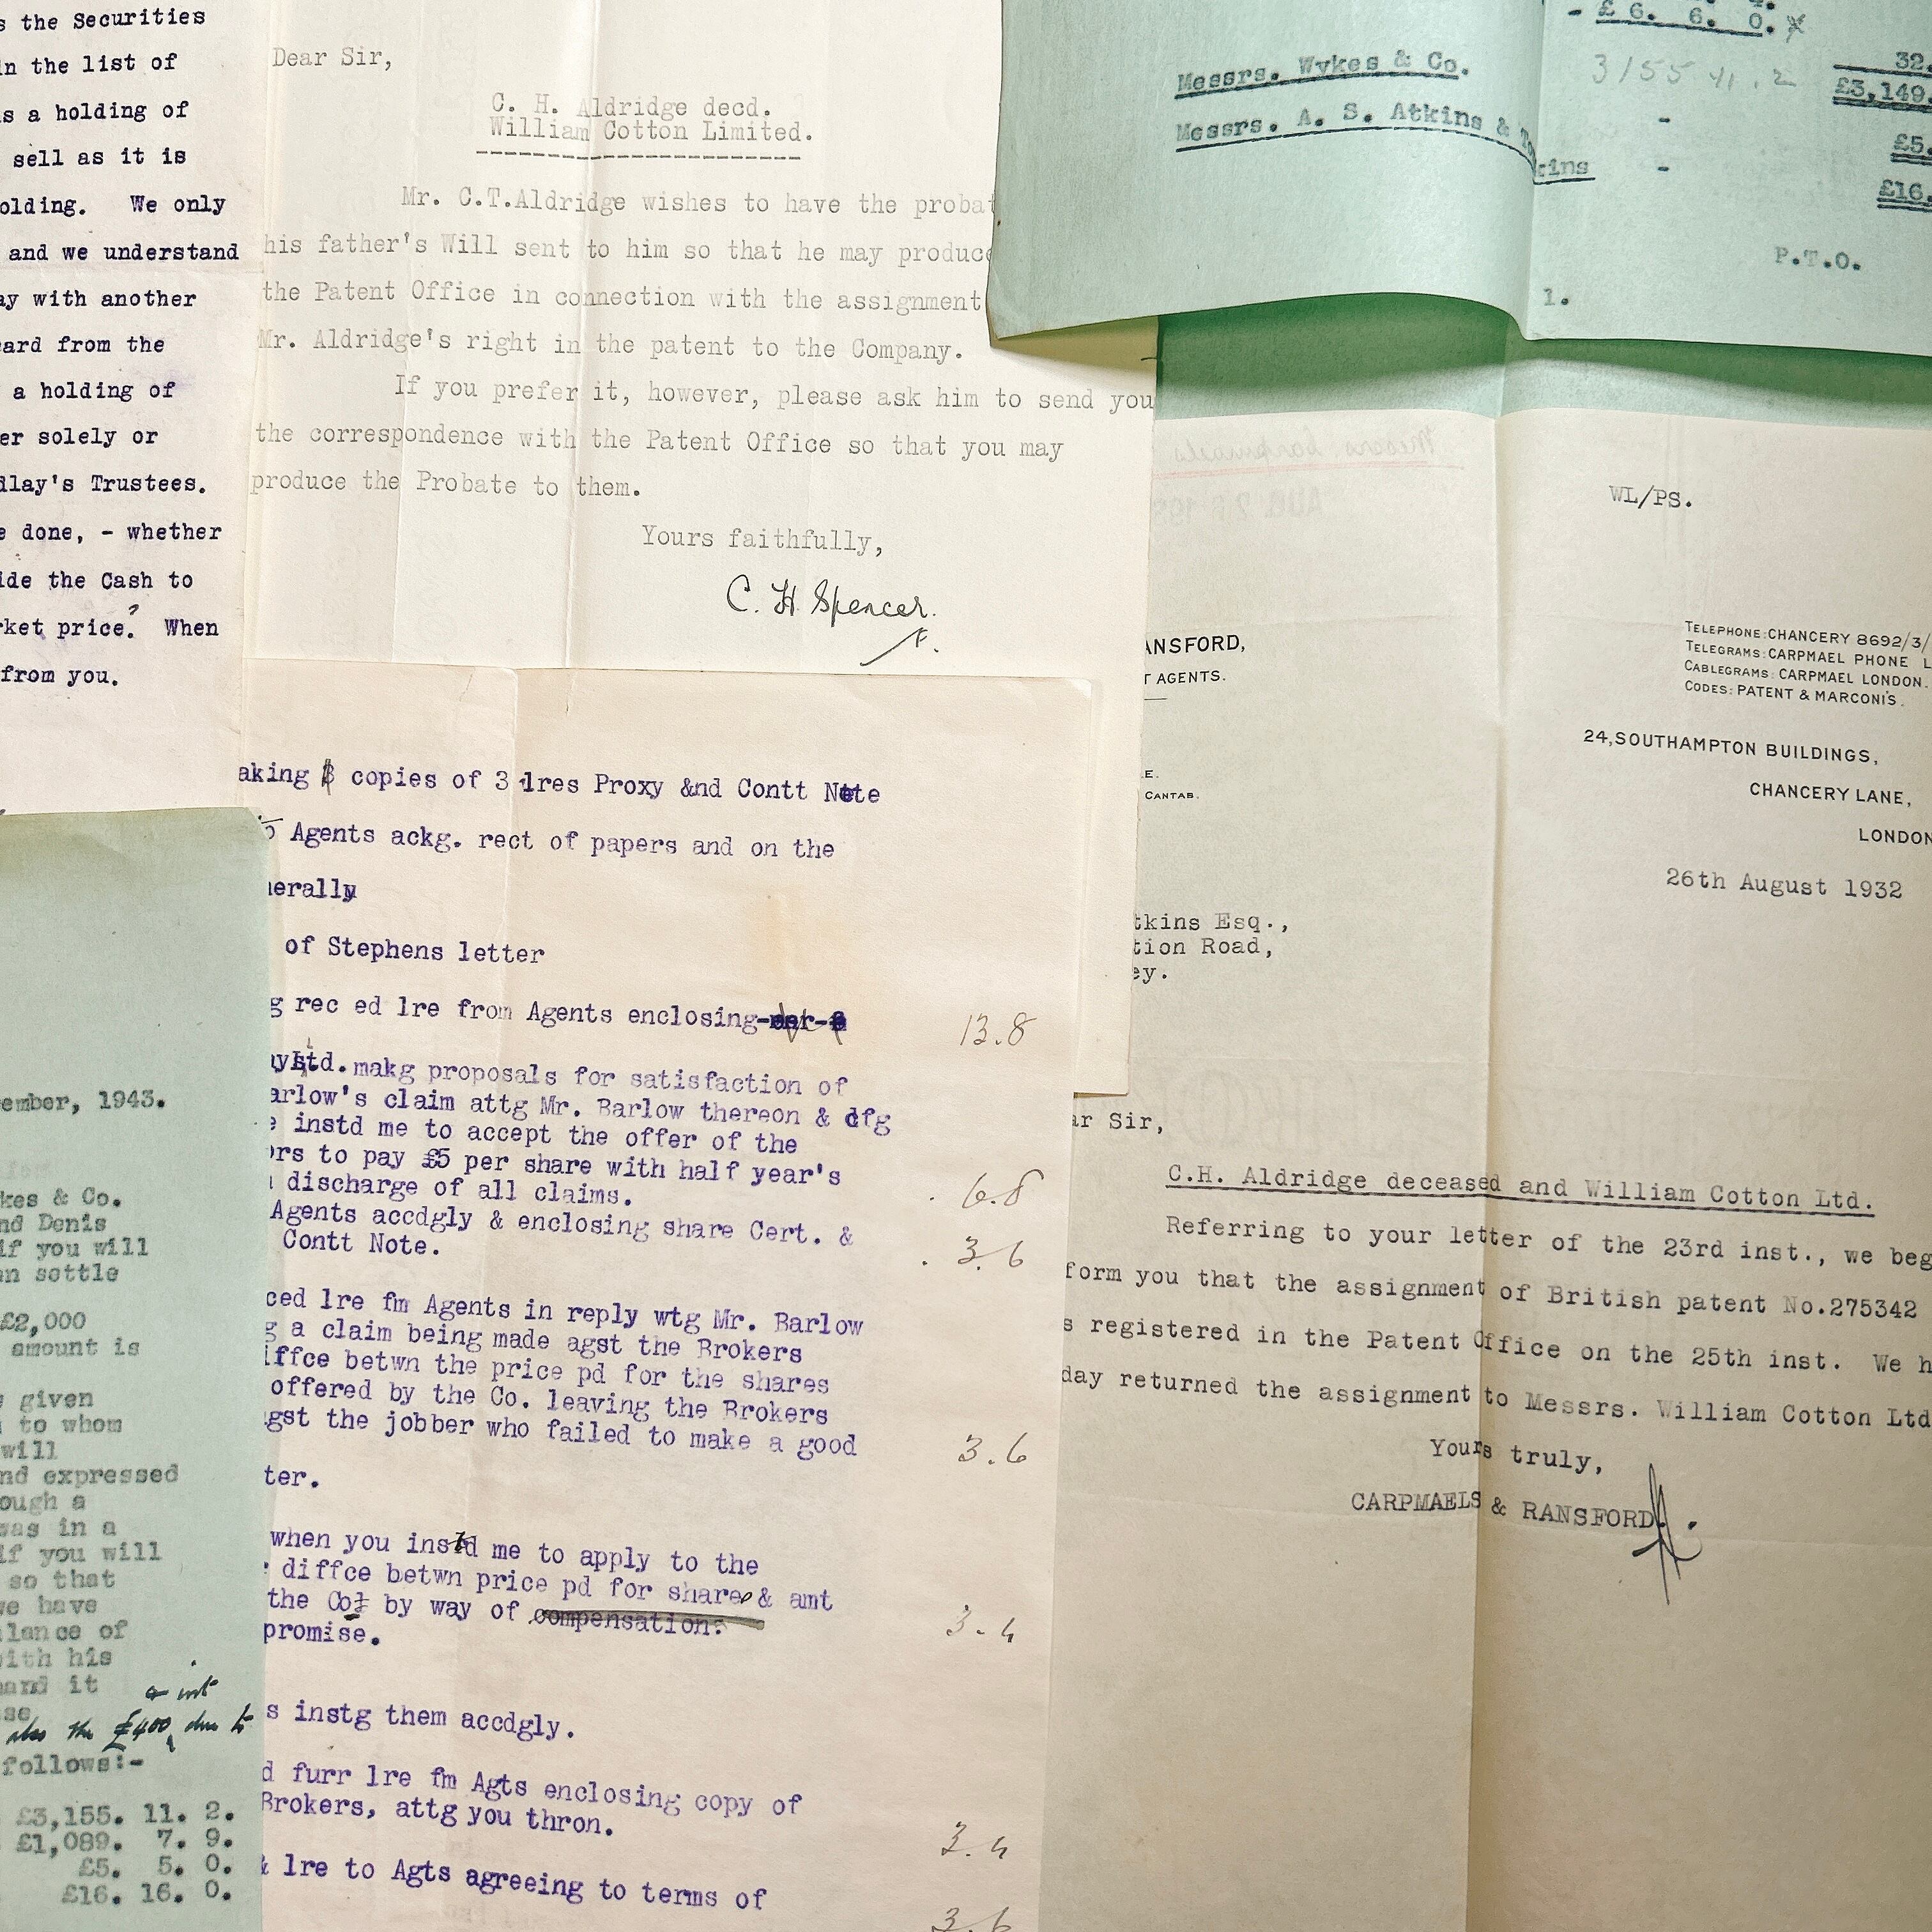 s the Securities
in the list of
s a holding of
sell as it is
olding. We only
and we understand
ay with another
eard from the
a holding of
er solely or
dlay's Trustees.
e done, - whether
ide the Cash to
rket price? When
from you.
Dear Sir,
C. H. Aldridge decd.
William Cotton Limited.
Mr. C.T.Aldridge wishes to have the probat
his father's Will sent to him so that he may produce
the Patent Office in connection with the assignment
Mr. Aldridge's right in the patent to the Company.
If you prefer it, however, please ask him to send you
the correspondence with the Patent Office so that you may
produce the Probate to them.
Yours faithfully,
C. H Spencer.
- £6. 6. 0.
32.
Messrs. Wykes & Co. 3155 11.2 £3,149.
Messrs. A. S. Atkins & - £5.
kins - £16.
P.T.O.
1.
WL/PS.
ANSFORD,
T AGENTS.
E.
CANTAB.
TELEPHONE: CHANCERY 8692/3/
TELEGRAMS: CARPMAEL PHONE L
CABLEGRAMS: CARPMAEL LONDON.
CODES: PATENT & MARCONI'S.
24, SOUTHAMPTON BUILDINGS,
CHANCERY LANE,
LONDON
26th August 1932
tkins Esq.,
tion Road,
ey.
ar Sir,
C.H. Aldridge deceased and William Cotton Ltd.
Referring to your letter of the 23rd inst., we beg
form you that the assignment of British patent No.275342
s registered in the Patent Office on the 25th inst. We h
day returned the assignment to Messrs. William Cotton Ltd
Yours truly,
CARPMAELS & RANSFORD.
aking copies of 3 lres Proxy &nd Contt Note
Agents ackg. rect of papers and on the
nerally
of Stephens letter
g rec ed lre from Agents enclosing 13.8
Ltd. makg proposals for satisfaction of
arlow's claim attg Mr. Barlow thereon & dfg
e instd me to accept the offer of the
ors to pay £5 per share with half year's
discharge of all claims. 6.8
Agents accdgly & enclosing share Cert. &
Contt Note. 3.6
ced lre fm Agents in reply wtg Mr. Barlow
g a claim being made agst the Brokers
iffce betwn the price pd for the shares
offered by the Co. leaving the Brokers
gst the jobber who failed to make a good 3.6
ter.
when you instd me to apply to the
diffce betwn price pd for share & amt
the Co. by way of compensation. 3.4
promise.
s instg them accdgly.
d furr lre fm Agts enclosing copy of
Brokers, attg you thron. 3.4
& lre to Agts agreeing to terms of
3.6
ember, 1943.
kes & Co.
nd Denis
if you will
en settle
£2,000
amount is
given
to whom
will
nd expressed
ough a
was in a
if you will
so that
we have
lance of
with his
hand it
& int
also the £400 due to
follows:-
£3,155. 11. 2.
£1,089. 7. 9.
£5. 5. 0.
£16. 16. 0.